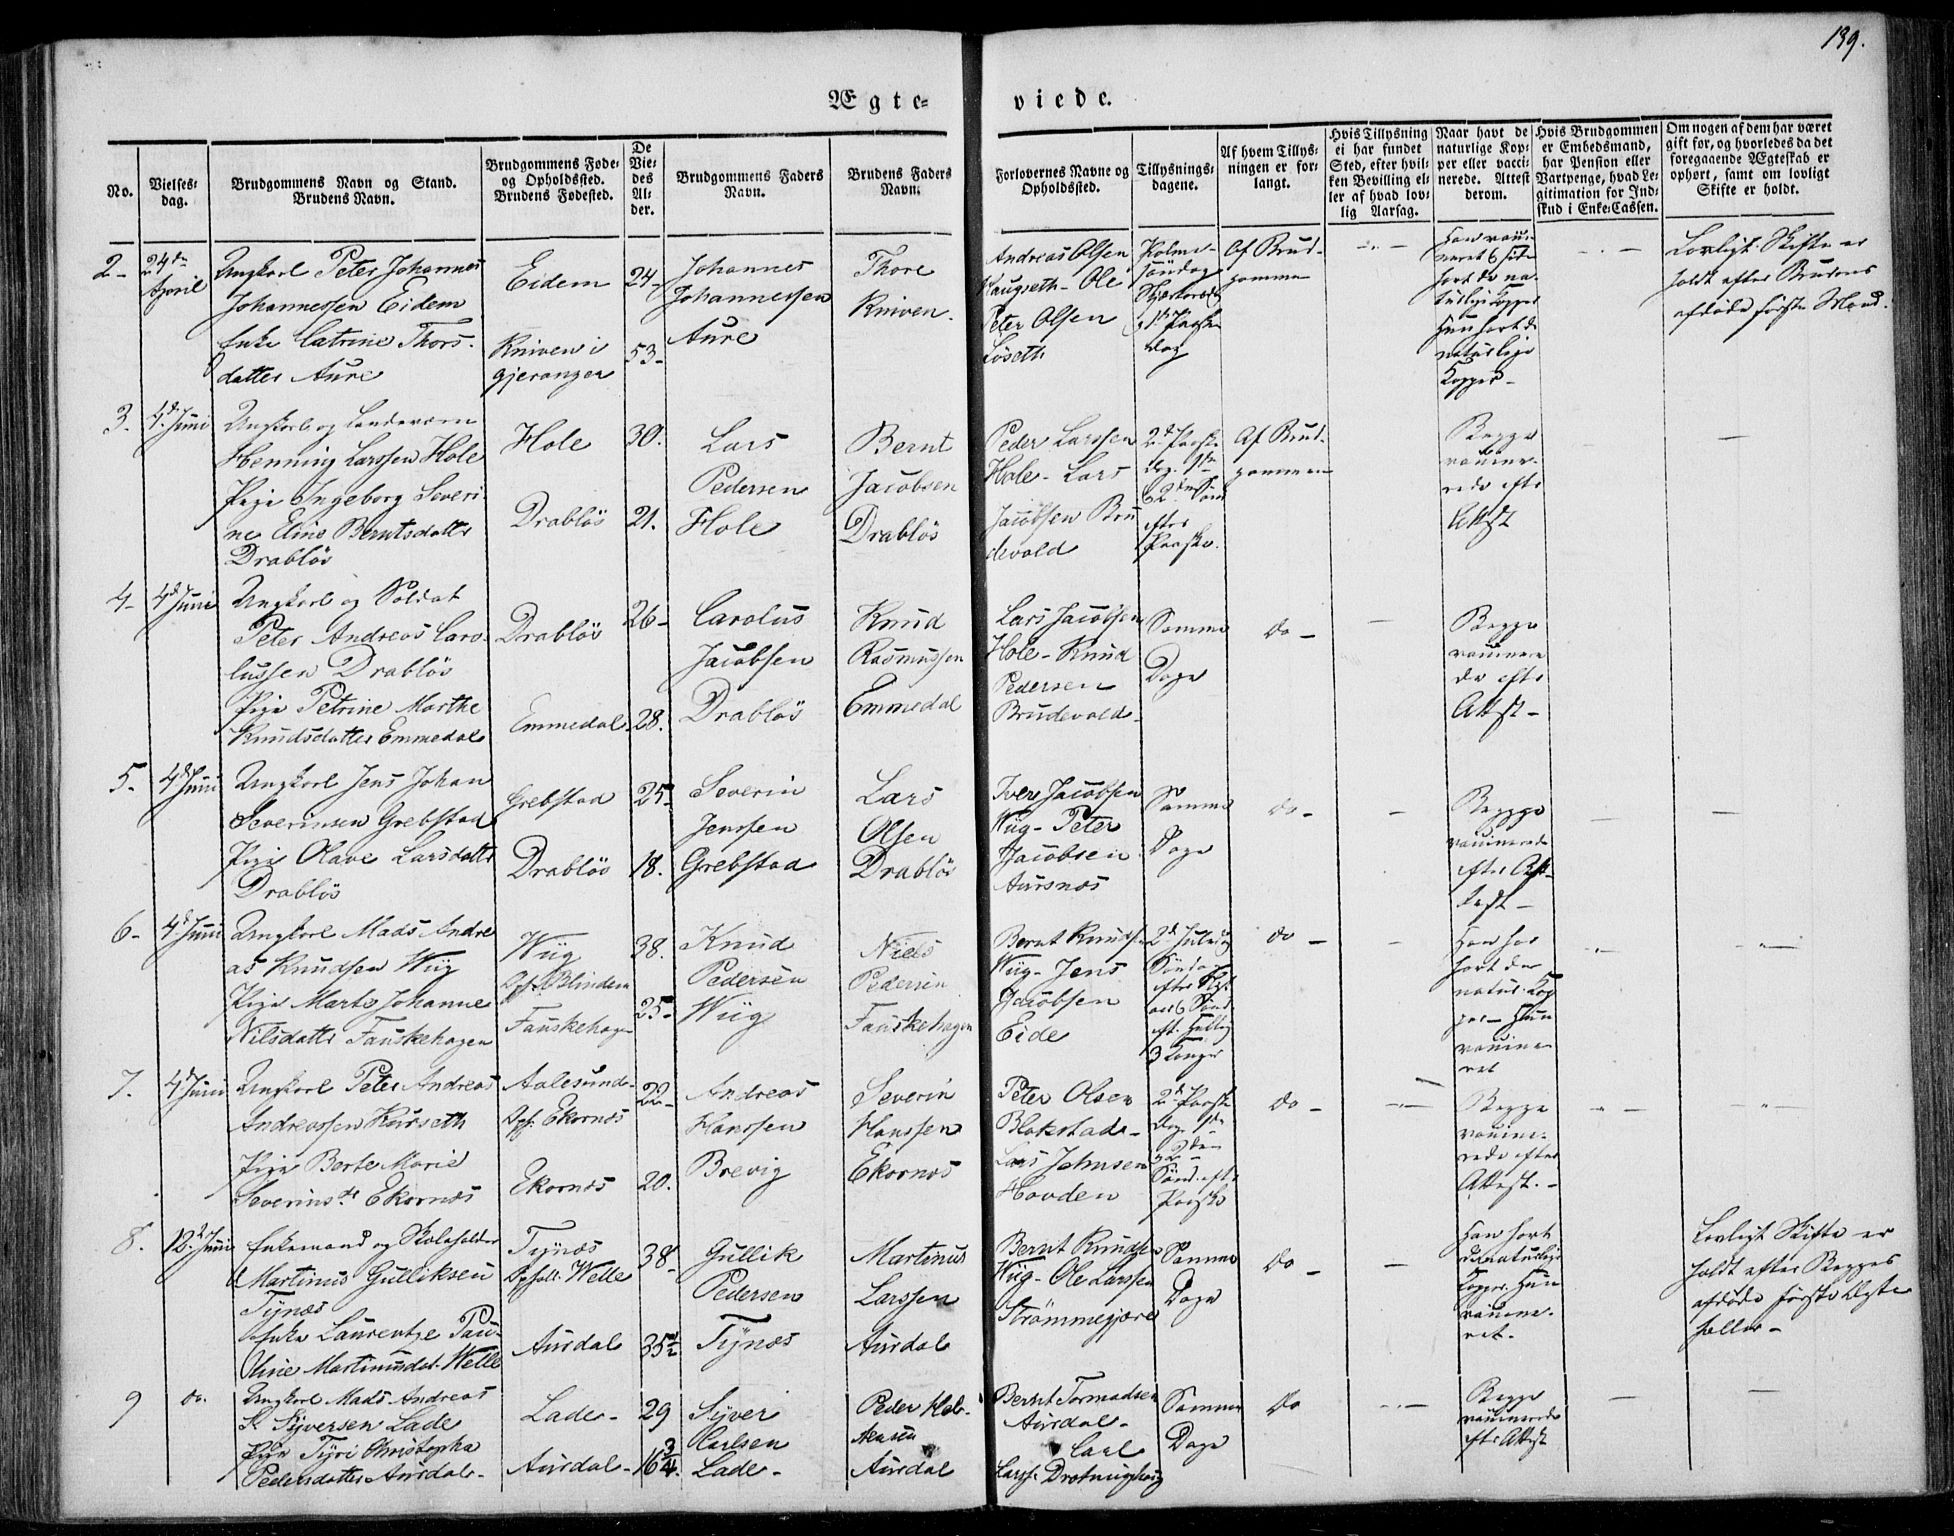 139.
Ægte-
viede.
No.
Vielses-
dag.
Brudgommens Navn og Stand.
Brudens Navn.
Brudgommens Føde-
og Opholdssted.
Brudens Fødested.
De
Vie-
des
Al-
der.
Brudgommens Faders
Navn.
Brudens Faders
Navn.
Forlovernes Navne og
Opholdssted.
Tillysnings-
dagene.
Af hvem Tillys-
ningen er for-
langt.
Hvis Tillysning
ei har fundet
Sted, efter hvil-
ken Bevilling el-
ler af hvad lov-
lig Aarsag.
Naar havt de
naturlige Kop-
per eller vacci-
nerede. Attest
derom.
Hvis Brudgommen
er Embedsmand,
har Pension eller
Vartpenge, hvad Le-
gitimation for Ind-
skud i Enke-Cassen.
Om nogen af dem har været
gift før, og hvorledes da det
foregaaende Ægteskab er
ophørt, samt om lovligt
Skifte er holdt.
2-
24de
April
Ungkarl Peter Johannes
Johannessen Eidem
Enke Catrine Thors-
datter Aure
Eidem
Kniven i
Gjeranger
24-
53-
Johannes
Johannessen
Aure
Thore
Kniven.
Andreas Olsen
Haugseth - Ole
Peter Olsen
Løseth
Palme-
søndag
Skjertorsdag
1ste Paaske
dag
Af Brud-
gommen
Lovligt Skifte er
holdt efter Brudens
afdøde første Mand.
3.
4d Juni
Ungkarl og Landeværn
Henning Larssen Hole
Pige Ingeborg Severi
ne Eline Berntsdatter
Drabløs
Hole
Drabløs
30.
21.
Lars
Pedersen
Hole
Bernt
Jacobsen
Drabløs
Peder Larssen
Hole - Lars
Jacobsen Bru
devold
2d Paaske
dag, 1ste
& 2den Sønd
efter
Paaske.
Af Brud-
gommen
Begge
vaccine-
rede efter
Attest
4-
4d Juni
Ungkarl og Soldat
Peter Andreas Caro-
lussen Drabløs
Pige Petrine Marthe
Knudsdatter Emmedal
Drabløs
Emmedal
26-
28.
Carolus
Jacobsen
Drabløs
Knud
Rasmussen
Emmedal
Lars Jacobsen
Hole - Knud
Pedersen
Brudevold-
Samme
Dage
do -
Begge
vaccinere
de efter
Attest -
5-
4d Juni
Ungkarl Jens Johan
Severinsen Grebstad
Pige Olave Larsdatter
Drabløs
Grebstad
Drabløs
25-
18.
Severin
Jenssen
Grebstad
Lars
Olsen
Drabløs
Iver Jacobsen
Wiig - Peter
Jacobsen
Aursnæs
Samme
Dage
do -
Begge
vaccinerede
efter At-
test -
6-
4d Juni
Ungkarl Mads Andre
as Knudsen Wiig
Pige Marte Johanne
Nilsdatter Fauskehagen
Wiig
Ophs. Blindem
Fauskehagen
38.
25-
Knud
Pedersen
Wiig
Niels
Pedersen
Fauskehagen
Bernt Knudsen
Wiig - Jens
Jacobsen
Eide
3 Konger
do -
Han har
havt de
natur. Kop
per - Hun
vaccine-
ret
7.
4d Juni
Ungkarl Peter Andreas
Andreassen Kurseth
Pige Berte Marie
Severinsdr Ekornæs
Aalesund-
Ophs. Ekornæs
Ekornæs
22-
20.
Andreas
Hanssen
Brevig
Severin
Hanssen
Ekornæs
Peter Olsen
Blakstad-
Lars Johnsen
Hovden
2d Paaske
dag, 1ste
& 2den
Sønd. eft.
Paaske
do -
Begge
vaccine-
rede efter
Attest. -
8.
12. Juni
Enkemand og Skoleholder
Martinus Gulliksen
Tynæs
Enke Laurentze Pau-
line Martinusdat. Welle
Tynæs
Ophold. Welle
Aursdal
38-
35½
Gullik
Pedersen
Tynæs
Martinus
Larssen
Aursdal
Bernt Knudsen
Wiig - Ole Larssen
Strømmegjære
Samme
Dage
do -
Han havt
de naturlige
Kopper. Hun
vaccine-
ret.
Lovligt Skifte er
holdt efter Begges
afdøde første Ægte
fæller -
9
do.
Ungkarl Mads Andreas
S. Syversen Lade
Pige Tyri Christopha
Pedersdatter Aursdal-
Lade-
Aursdal-
29
16¾.
Syver
Carlsen
Lade-
Peder
Aursdal
Bernt Tormodsen
Aursdal-
Carl
Larss. Drotninghaug
Samme
Dage
do
Begge
vaccinerede
efter Attest